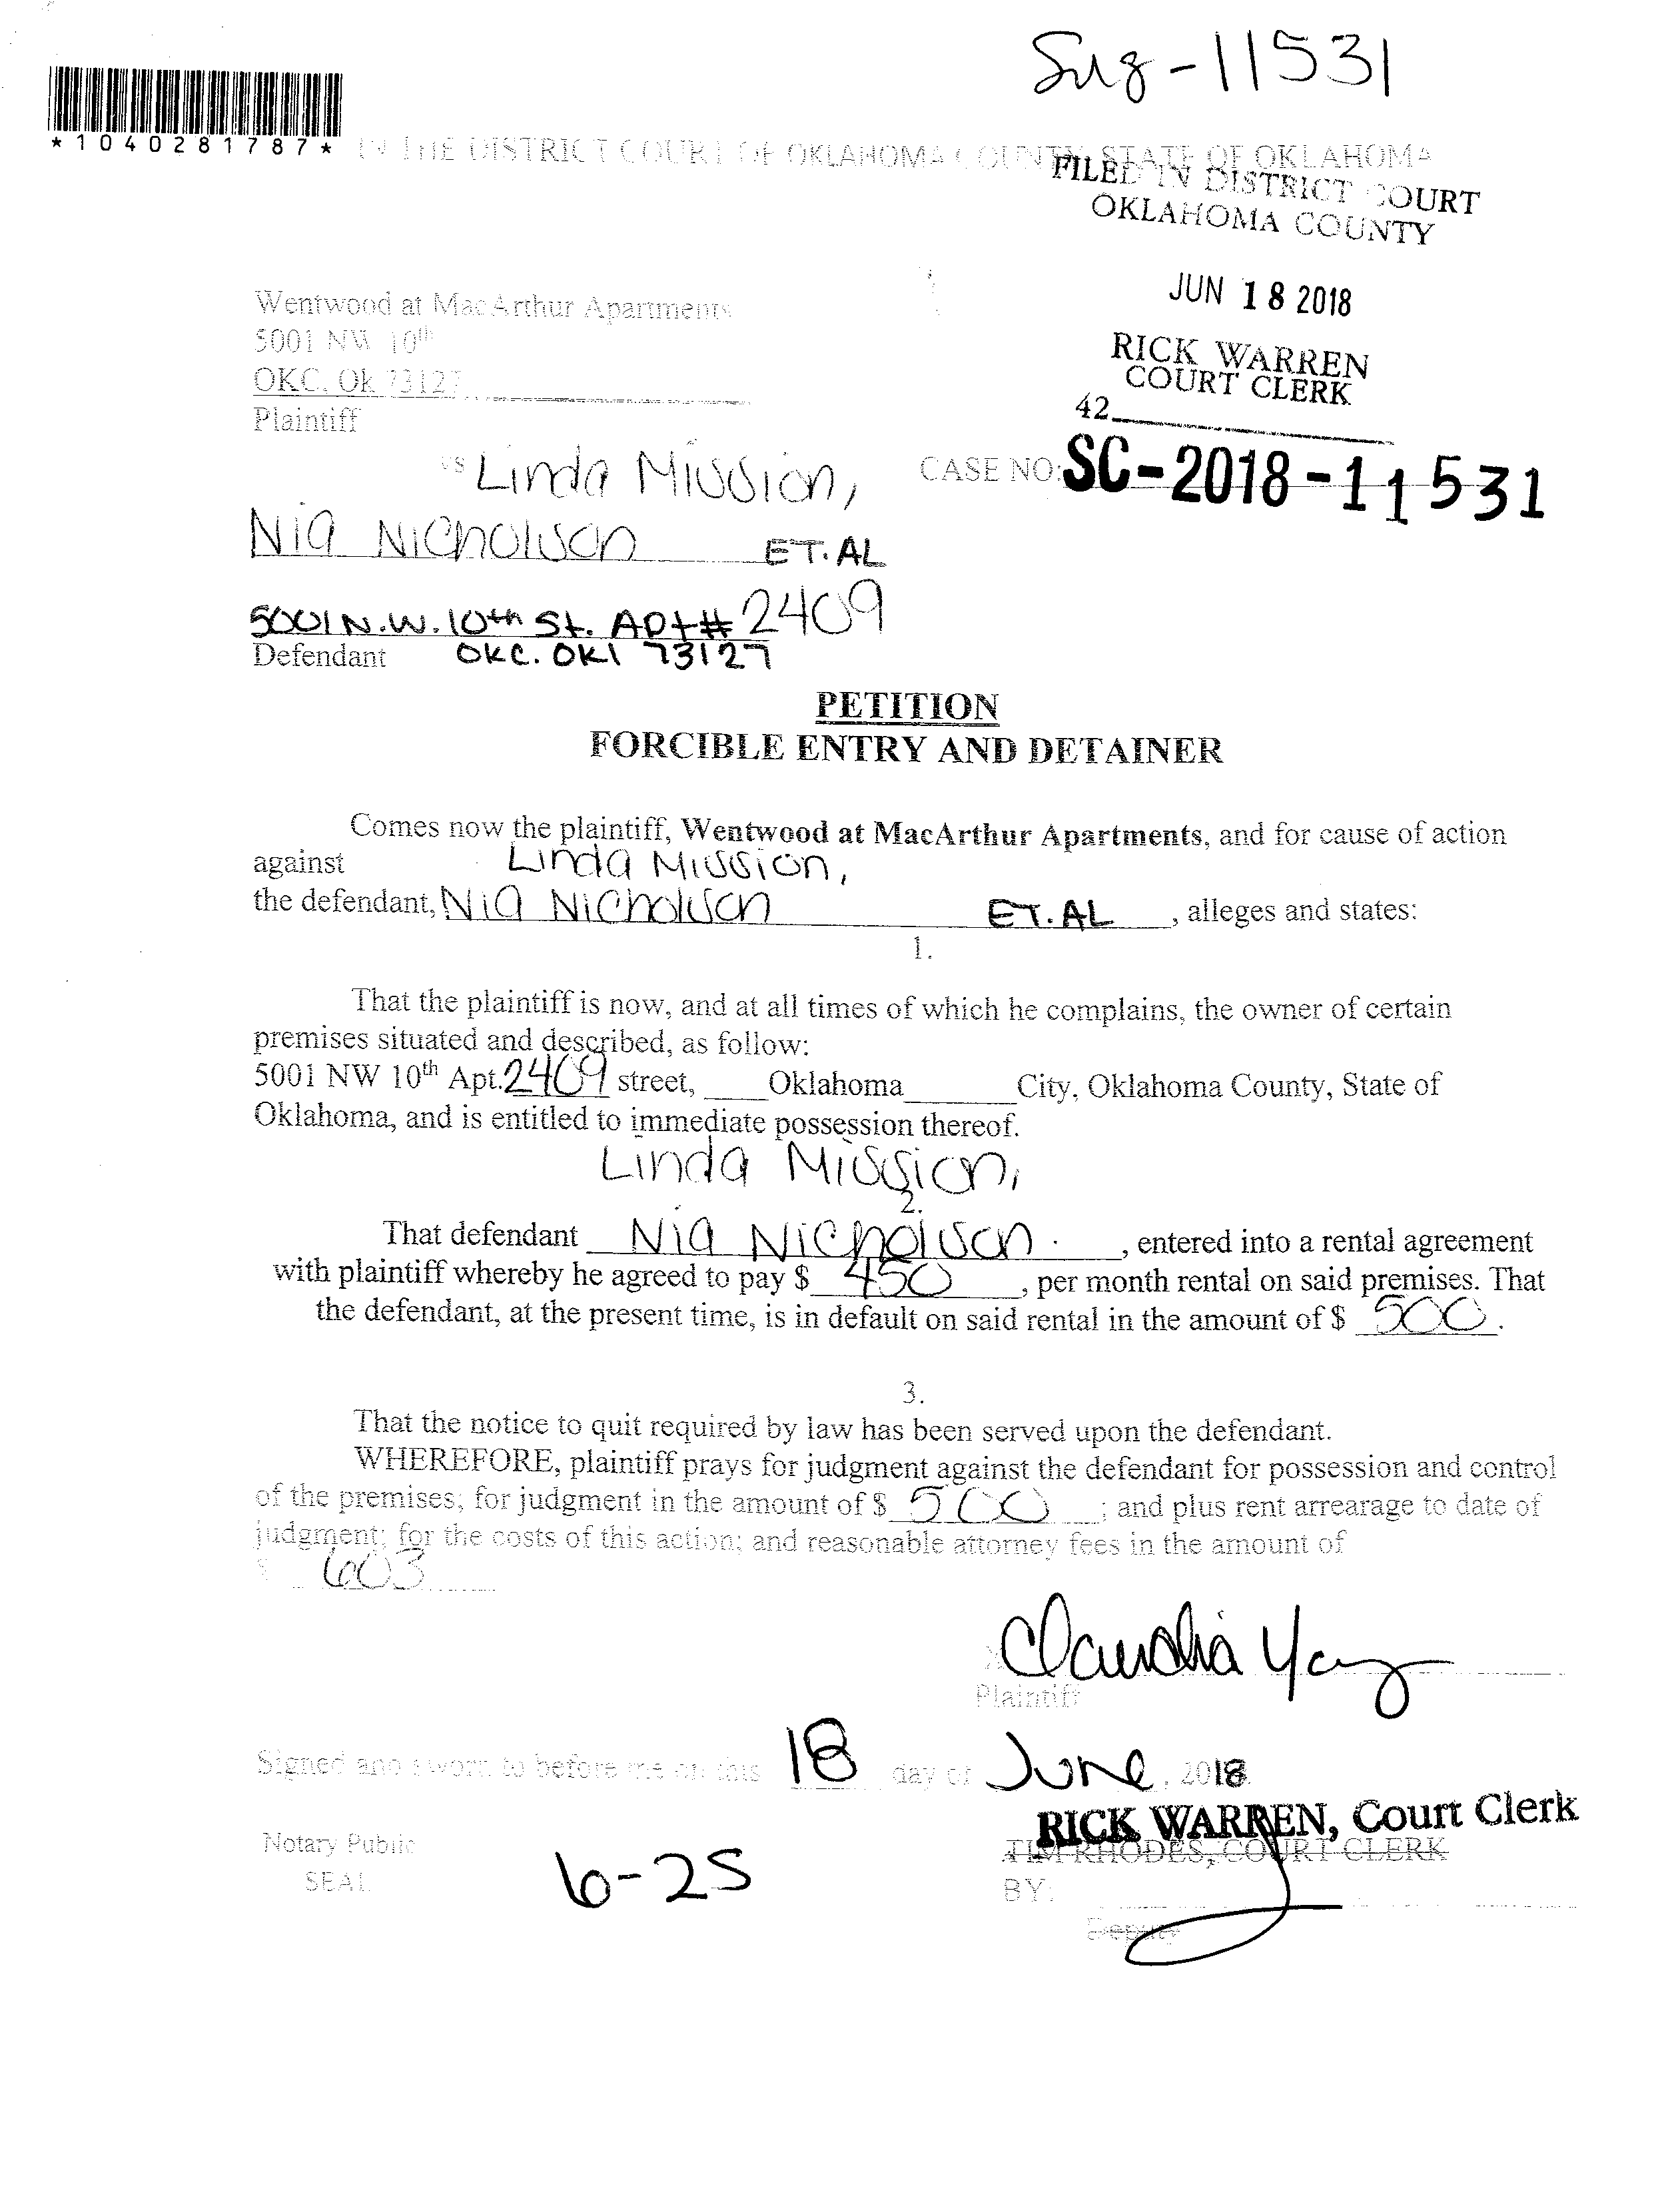 Sug-11531
*1040281787*
IN THE DISTRICT COURT OF OKLAHOMA COUNTY, STATE OF OKLAHOMA
FILED IN DISTRICT COURT
OKLAHOMA COUNTY
JUN 18 2018
RICK WARREN
COURT CLERK
42
Wentwood at MacArthur Apartments
5001 NW 10th
OKC, Ok 73127
Plaintiff
vs Linda Mission,
CASE NO: SC-2018-11531
Nia Nicholson ET. AL
5001 N.W. 10th St. Apt# 2409
Defendant OKC. OKl 73127
PETITION
FORCIBLE ENTRY AND DETAINER
Comes now the plaintiff, Wentwood at MacArthur Apartments, and for cause of action
against Linda Mission,
the defendant, Nia Nicholson ET. AL , alleges and states:
1.
That the plaintiff is now, and at all times of which he complains, the owner of certain
premises situated and described, as follow:
5001 NW 10th Apt. 2409 street, Oklahoma City, Oklahoma County, State of
Oklahoma, and is entitled to immediate possession thereof.
Linda Mission,
2.
That defendant Nia Nicholson , entered into a rental agreement
with plaintiff whereby he agreed to pay $ 450 , per month rental on said premises. That
the defendant, at the present time, is in default on said rental in the amount of $ 500.
3.
That the notice to quit required by law has been served upon the defendant.
WHEREFORE, plaintiff prays for judgment against the defendant for possession and control
of the premises; for judgment in the amount of $ 500 ; and plus rent arrearage to date of
judgment; for the costs of this action; and reasonable attorney fees in the amount of
$ 603
Claudia
Plaintiff
Signed and sworn to before me on this 18 day of June, 2018.
RICK WARREN, Court Clerk
Notary Public
TIM RHODES, COURT CLERK
SEAL
6-25
BY:
Deputy